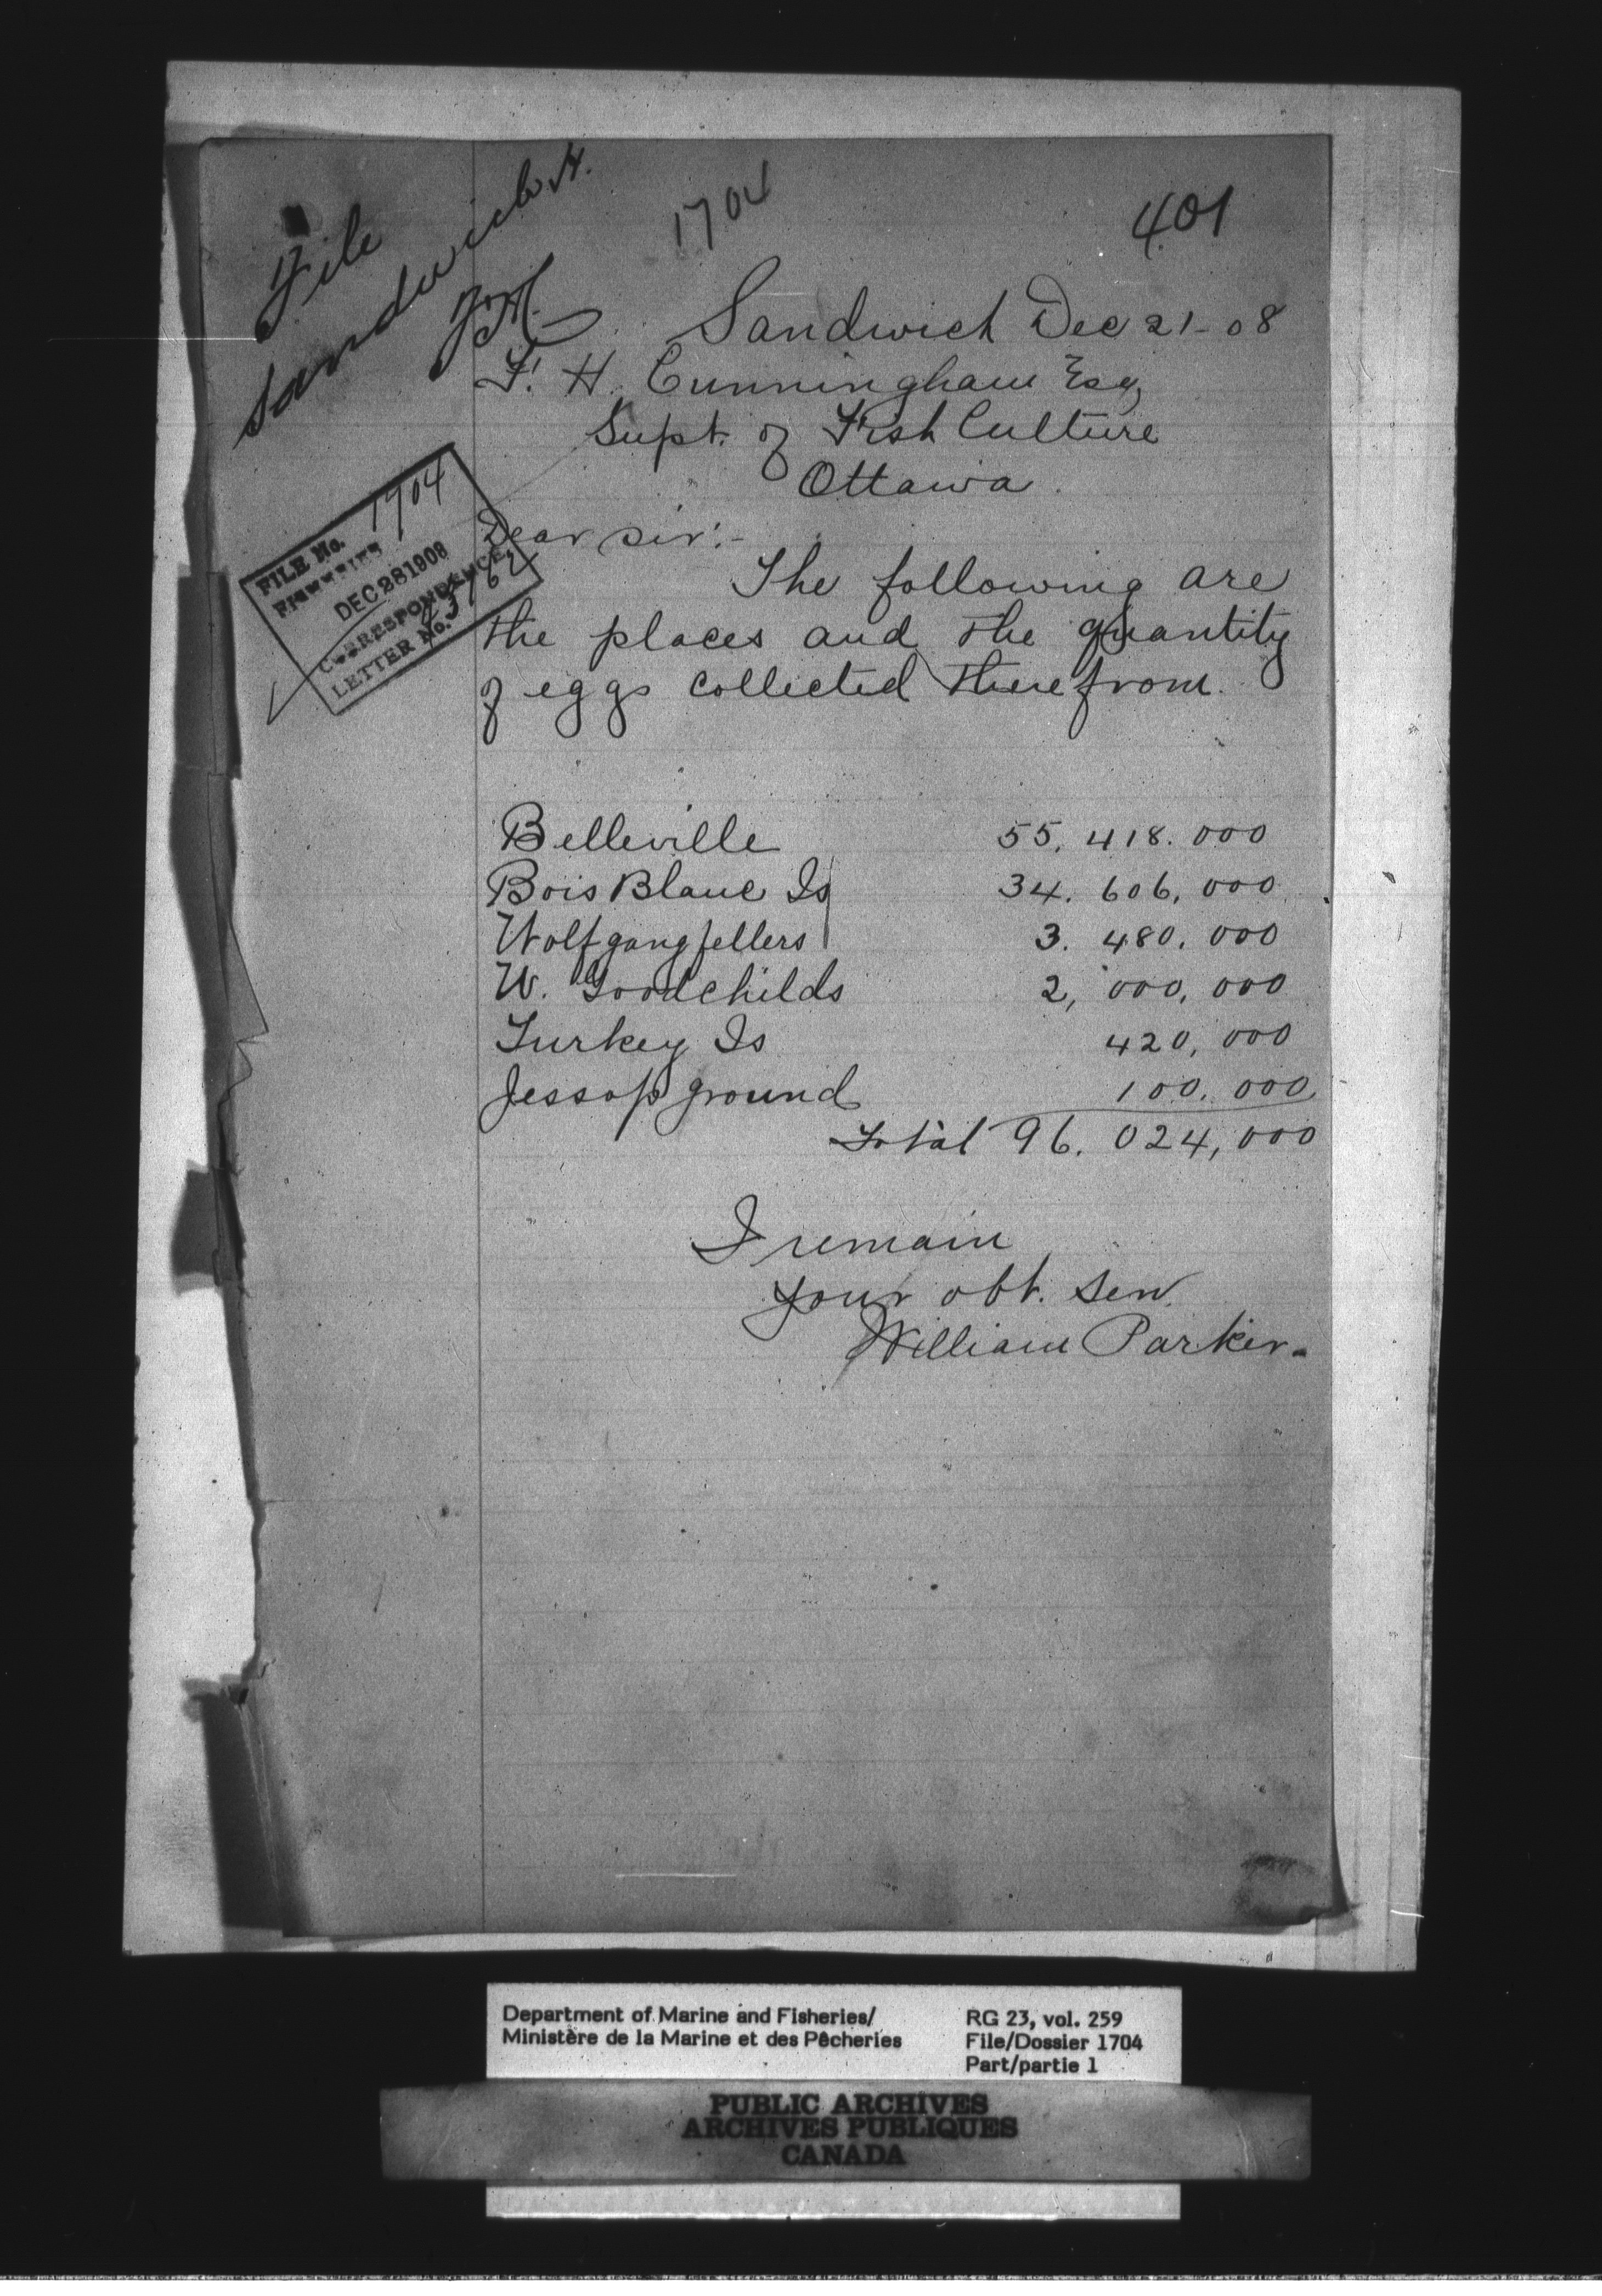 File
Sandwich H.
1704
401
Sandwich Dec 21-08
F. H. Cunningham Esq
Supt. of Fish Culture
Ottawa.
FILE No. 1704
FISHERIES
DEC 28 1908
CORRESPONDENCE
LETTER No.
Dear sir:-
The following are
the places and the quantity
of eggs collected therefrom.
Belleville 55,418.000
Bois Blanc Is 34.606,000
Wolfgangfellers 3.480.000
W. Goodchilds 2,000,000
Turkey Is 420,000
Jessop ground 100.000
Total 96.024,000
I remain
your obt. serv.
William Parker.
Department of Marine and Fisheries/
Ministère de la Marine et des Pêcheries
RG 23, vol. 259
File/Dossier 1704
Part/partie 1
PUBLIC ARCHIVES
ARCHIVES PUBLIQUES
CANADA